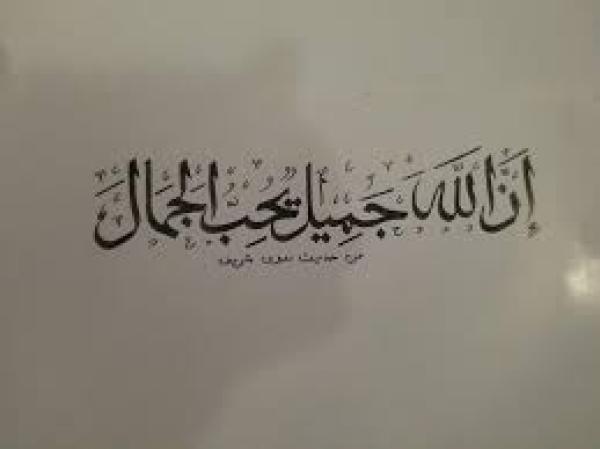 إِنَّ اللَّهَ جَمِيلٌ يُحِبُّ الْجَمَالَ
من حديث نبوي شريف